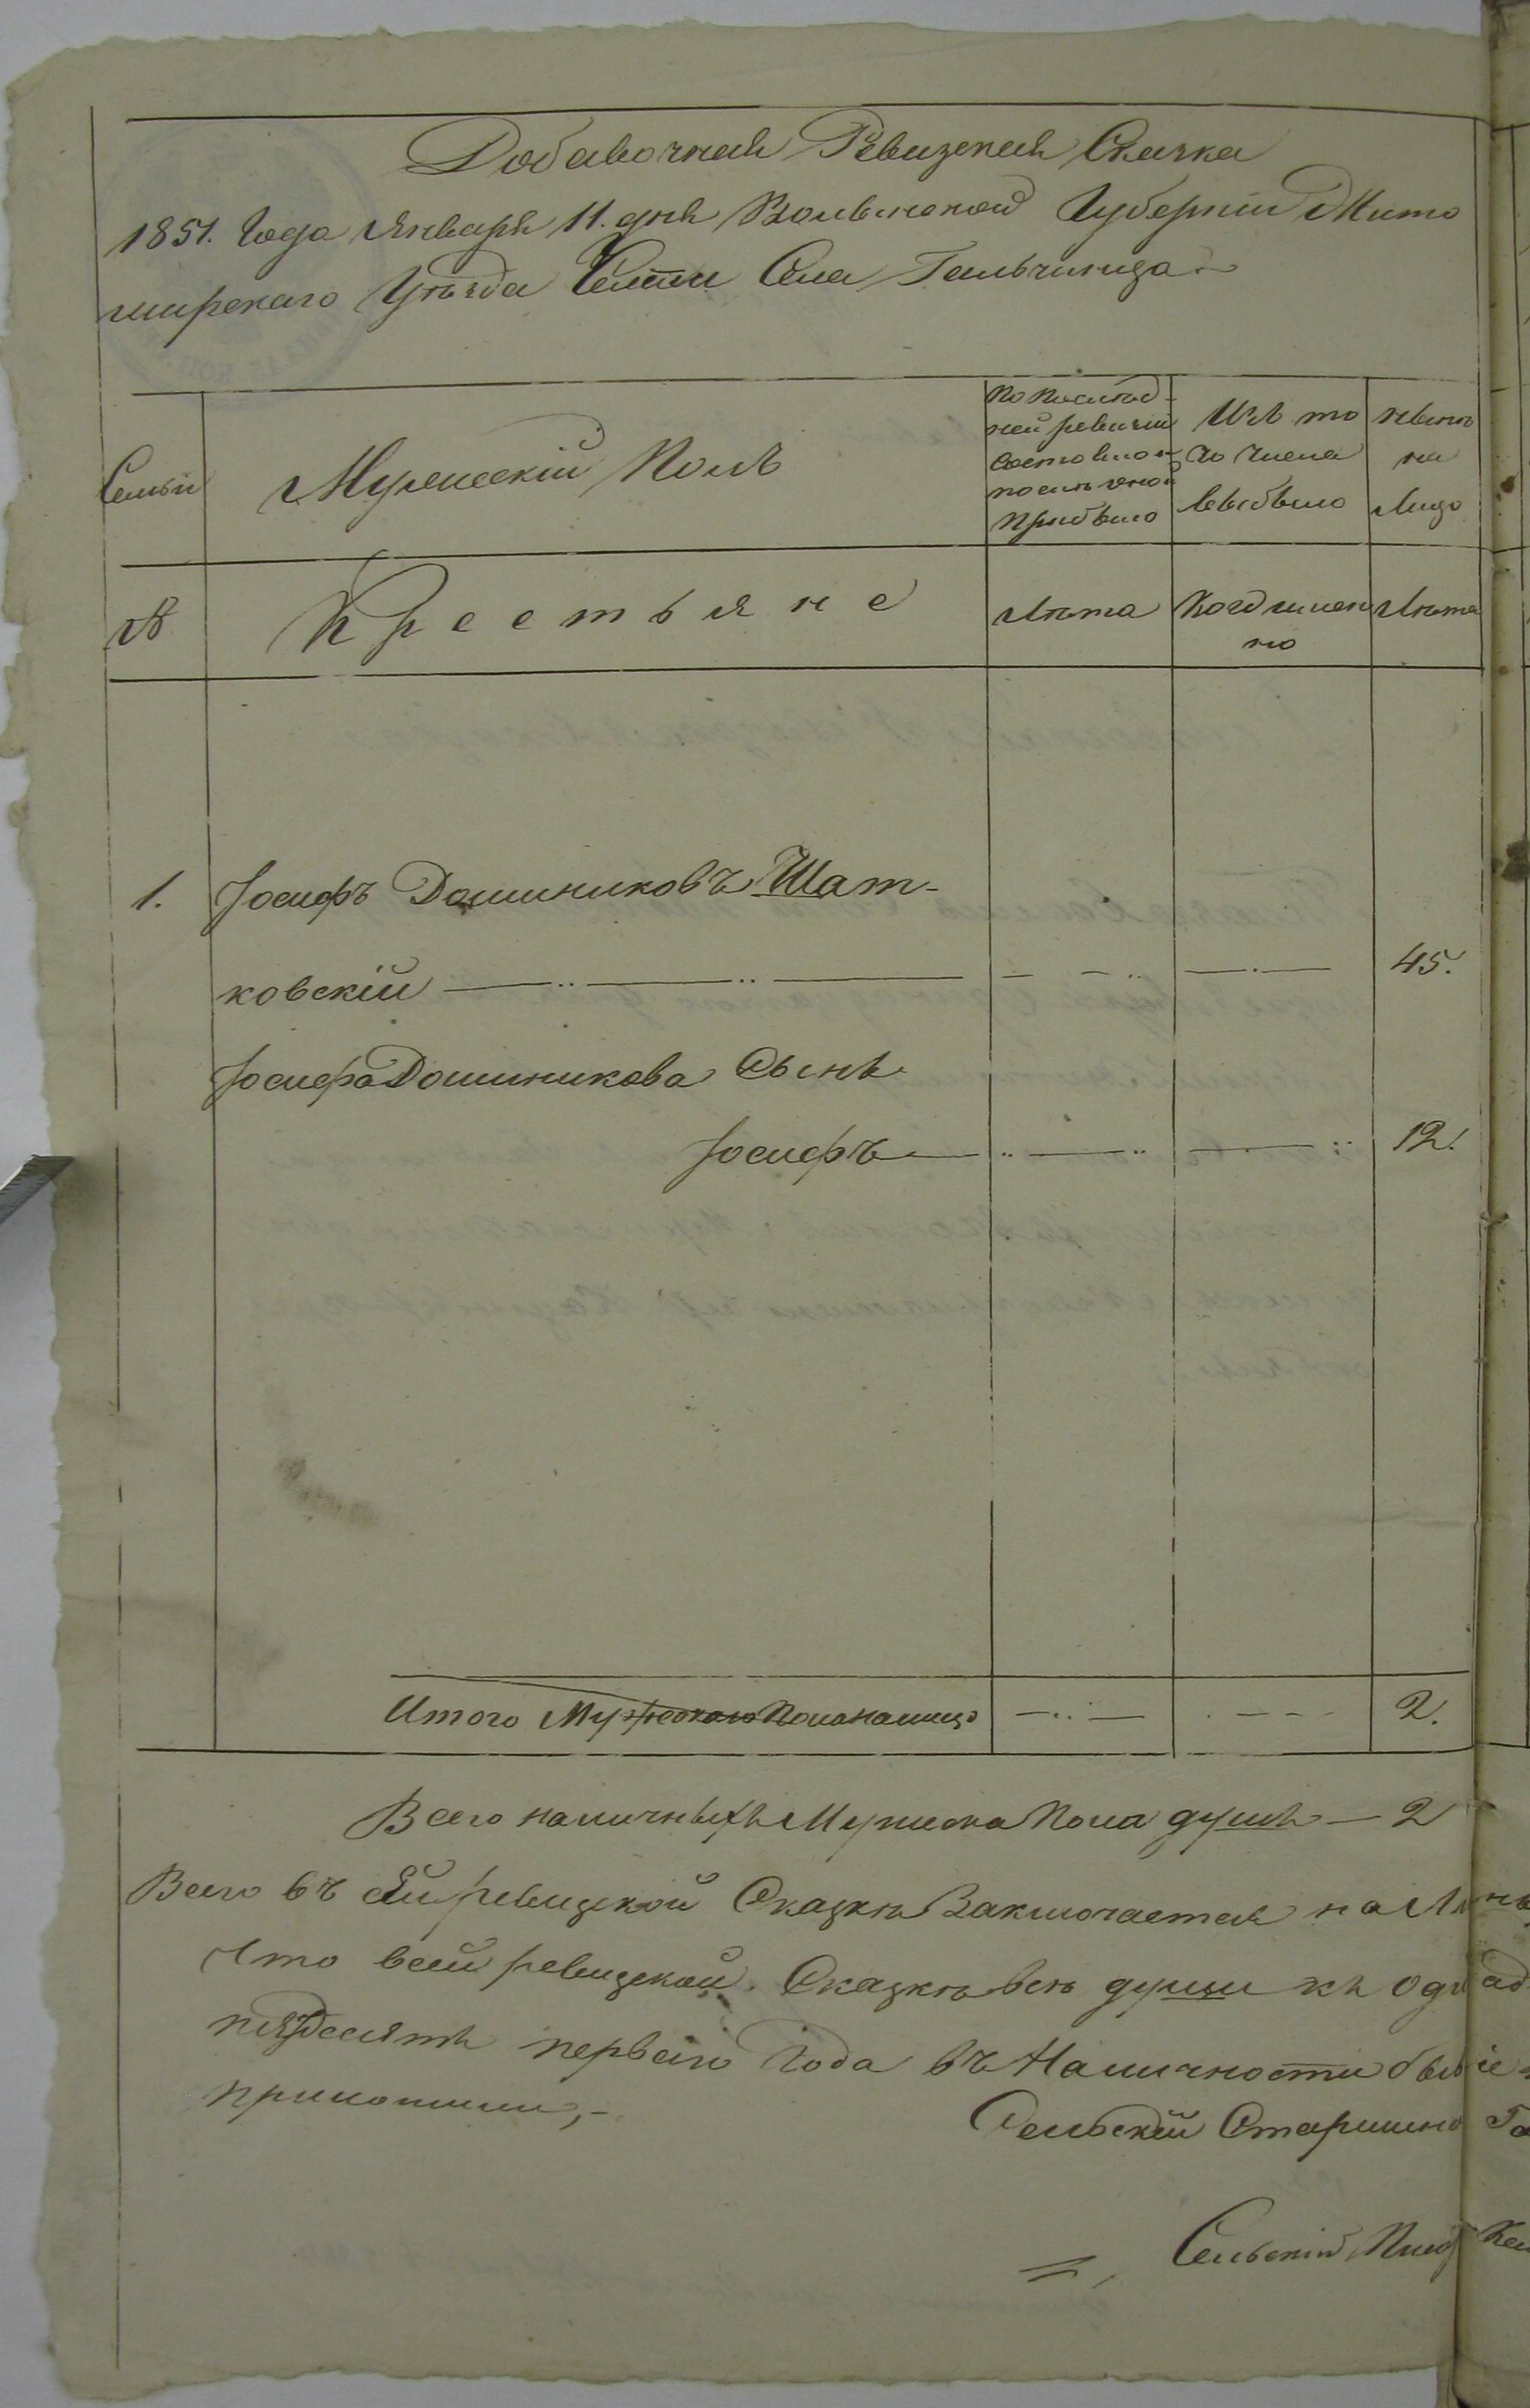 Добавочная Ревизская Сказка
1851. Года Января 11. дня Волынской Губерніи Жито
мирскаго Уѣзда Части Села Гальчинца
Семьи
Мужескій Полъ
по послѣд-
ней ревизіи
состояло и
послѣ оной
прибыло
Изъ то
го числа
выбыло
нынѣ
на
лицо
№
Крестьяне
Лѣта
Когда имен
но
Лѣта
1.
Іосифъ Доминиковъ Шат-
ковскій
45.
Іосифа Доминикова Сынъ
Іосифъ
12.
Итого Мужескаго Пола налицо
2.
Всего наличныхъ Мужеска Пола душъ — 2
Всего въ сей ревизской Сказкѣ Заключается на
Что всей ревизской Сказкѣ всѣ души къ
пядесятъ перваго Года въ Наличности
Сельскій Старшина
Сельскій